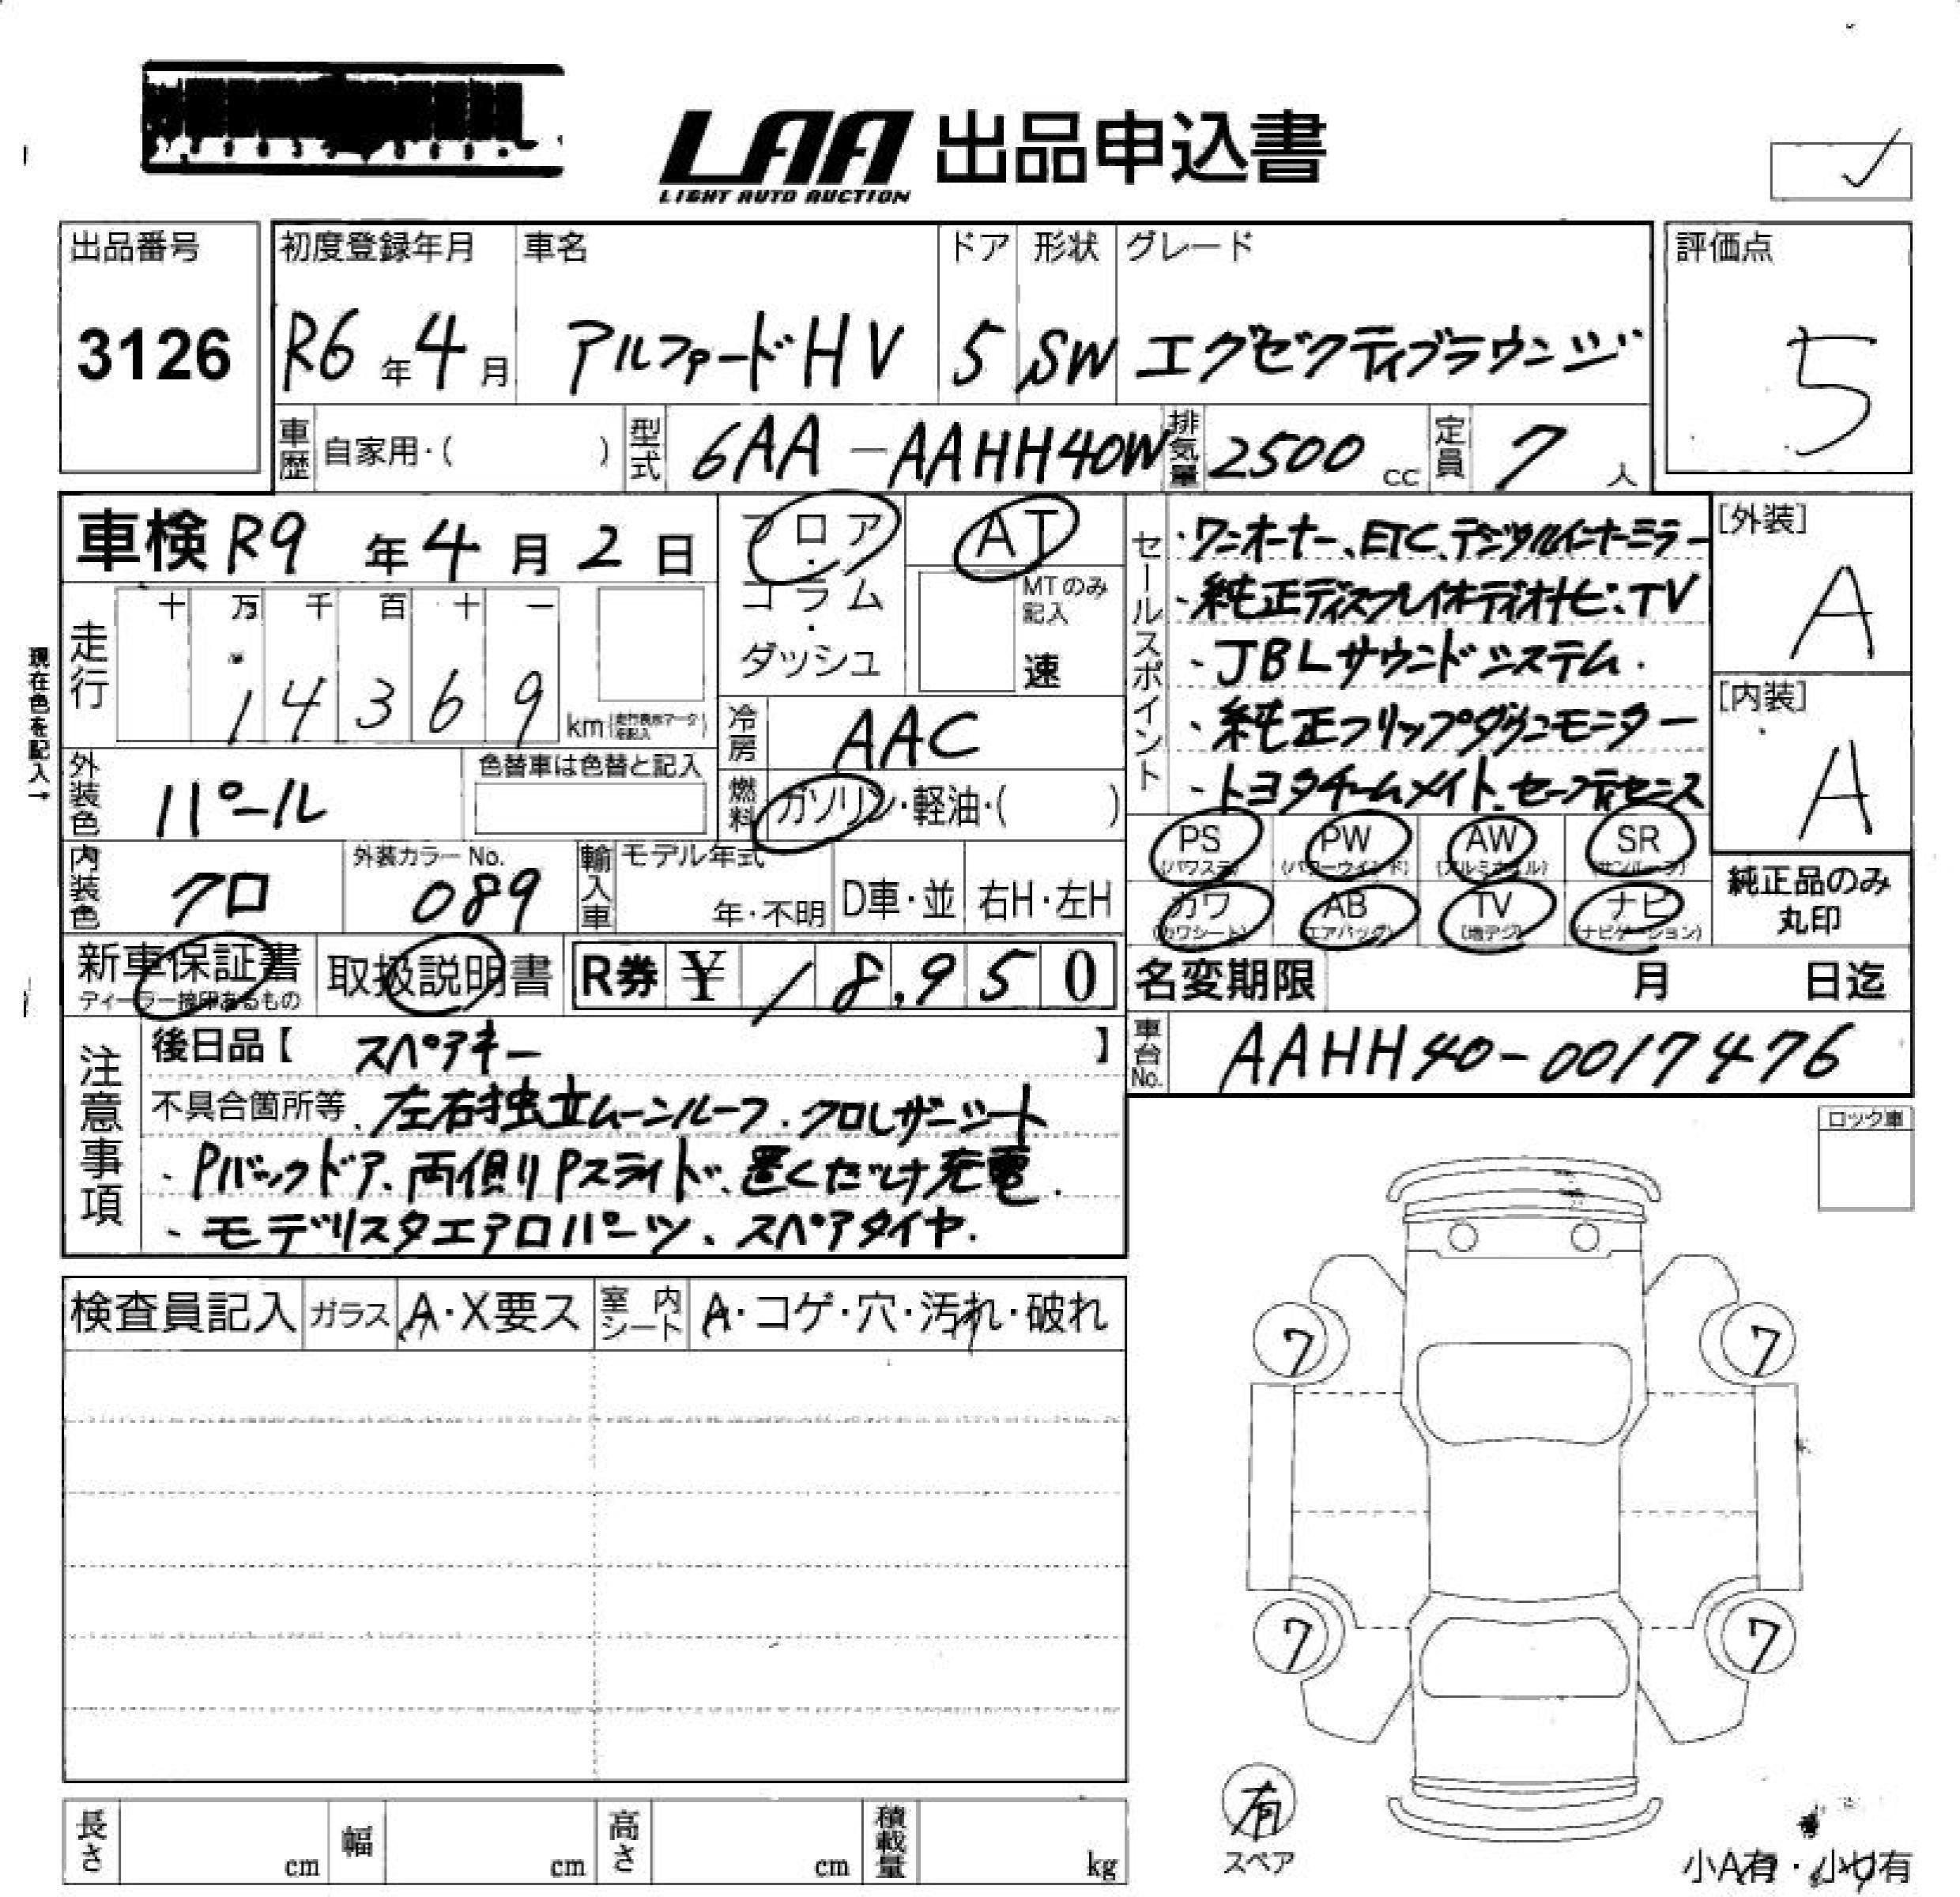 LAA 出品申込書
LIGHT AUTO AUCTION
出品番号
3126
初度登録年月 車名 ドア 形状 グレード
R6年4月 アルファードHV 5 SW エグゼクティブラウンジ
評価点
5
車歴 自家用・( ) 型式 6AA-AAHH40W 排気量 2500cc 定員 7人
車検 R9年4月2日
フロア・コラム・ダッシュ
AT
MTのみ記入
速
現在色を記入→
走行 十 万 千 百 十 一
14369 km
外装色 パール 色替車は色替と記入
冷房 AAC
燃料 ガソリン・軽油・( )
内装色 クロ 外装カラーNo. 089 輸入車 モデル年式 年・不明 D車・並 右H・左H
セールスポイント
・ワンオーナー、ETC、デジタルインナーミラー
・純正ディスプレイオーディオナビ、TV
・JBLサウンドシステム.
・純正フリップダウンモニター
・トヨタチームメイト、セーフティセンス
[外装]
A
[内装]
A
PS PW AW SR
(パワステ) (パワーウインド) (アルミホイル) (サンルーフ)
カワ AB TV ナビ
(カワシート) (エアバッグ) (地デジ) (ナビゲーション)
純正品のみ
丸印
新車保証書 取扱説明書 R券 ¥18,950
ディーラー捺印あるもの
名変期限 月 日迄
車台No. AAHH40-0017476
注意事項
後日品【 スペアキー 】
不具合箇所等、左右独立ムーンルーフ、クロレザーシート
・Pバックドア、両側Pスライド、置くだけ充電.
・モデリスタエアロパーツ、スペアタイヤ.
ロック車
検査員記入 ガラス A・X要ス 室内シート A・コゲ・穴・汚れ・破れ
7 7
7 7
有
スペア
長さ cm 幅 cm 高さ cm 積載量 kg
小A有・小U有